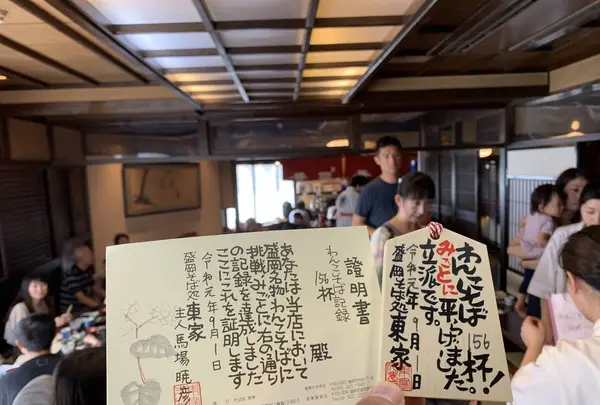 証明書
わんこそば記録
156杯
殿
あなたは当店において
盛岡名物わんこそばに
挑戦みごとに右の通り
の記録を達成しました
ここにこれを証明します
令和元年9月1日
盛岡そば処 東家
主人 馬場暁彦
わんこそば156杯!
みごとに平らげました。
立派です。
令和元年9月1日
盛岡そば処 東家